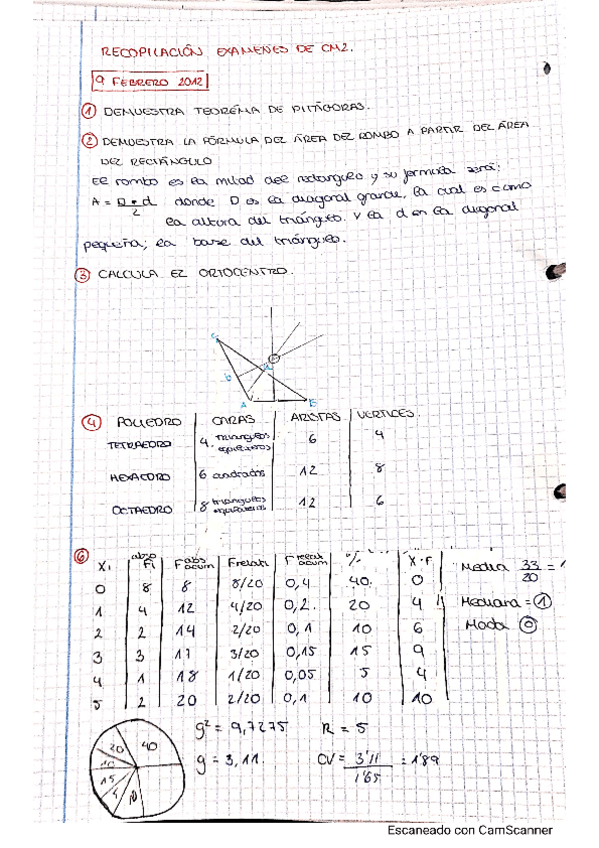 RECOPILACIÓN EXAMENES DE CM2.
9 FEBRERO 2012
① DEMUESTRA TEOREMA DE PITÁGORAS.
② DEMUESTRA LA FÓRMULA DEL ÁREA DEL ROMBO A PARTIR DEL ÁREA
DEL RECTÁNGULO
El rombo es la mitad del rectangulo y su formula será:
A = D•d/2 donde D es la diagonal grande, la cual es como
la altura del triángulo. Y la d en la diagonal
pequeña; la base del triángulo.
③ CALCULA EL ORTOCENTRO.
C
b
A
B
④ POLIEDRO CARAS ARISTAS VERTICES
TETRAEDRO 4 triangulos equilateros 6 4
HEXAEDRO 6 cuadrados 12 8
OCTAEDRO 8 triangulos equilateros 12 6
⑥ Xi abso Fi F abs acum F relati F relati acum % X·F
0 8 8 8/20 0,4 40 0
1 4 12 4/20 0,2. 20 4
2 2 14 2/20 0,1 10 6
3 3 17 3/20 0,15 15 9
4 1 18 1/20 0,05 5 4
5 2 20 2/20 0,1 10 10
Media 33/20 =
Mediana = ①
Moda ⓪
20 40
10
15
10
g² = 9,7275 R = 5
g = 3,11. CV = 3'11/1'65 = 1'89
Escaneado con CamScanner